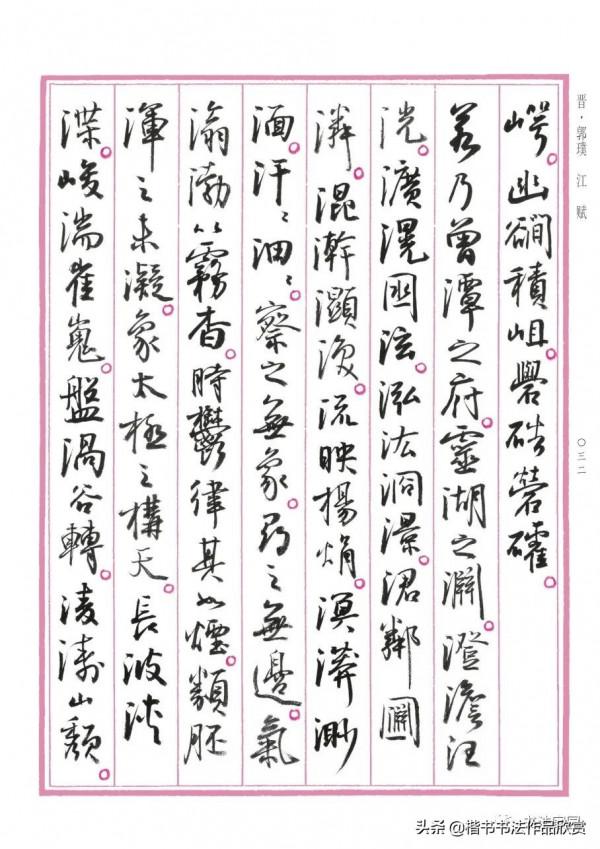 晋·郭璞 江赋
〇三二
崿。幽積岨。礐硞礭。
若乃曾潭之府。靈湖之淵。澄澹汪
洸。瀇滉泫。泓汯浻澋。涒鄰
潾。混澣灝渙。流映揚焆。溟漭渺
湎。汗〻沺〻。察之無象。尋之無邊。氣
滃渤以霧杳。時鬱律其如煙。類胚
渾之未凝。象太極之構天。長波浹
渫。峻湍崔嵬。盤渦谷轉。淩濤山頹。
头条@楷书书法作品欣赏